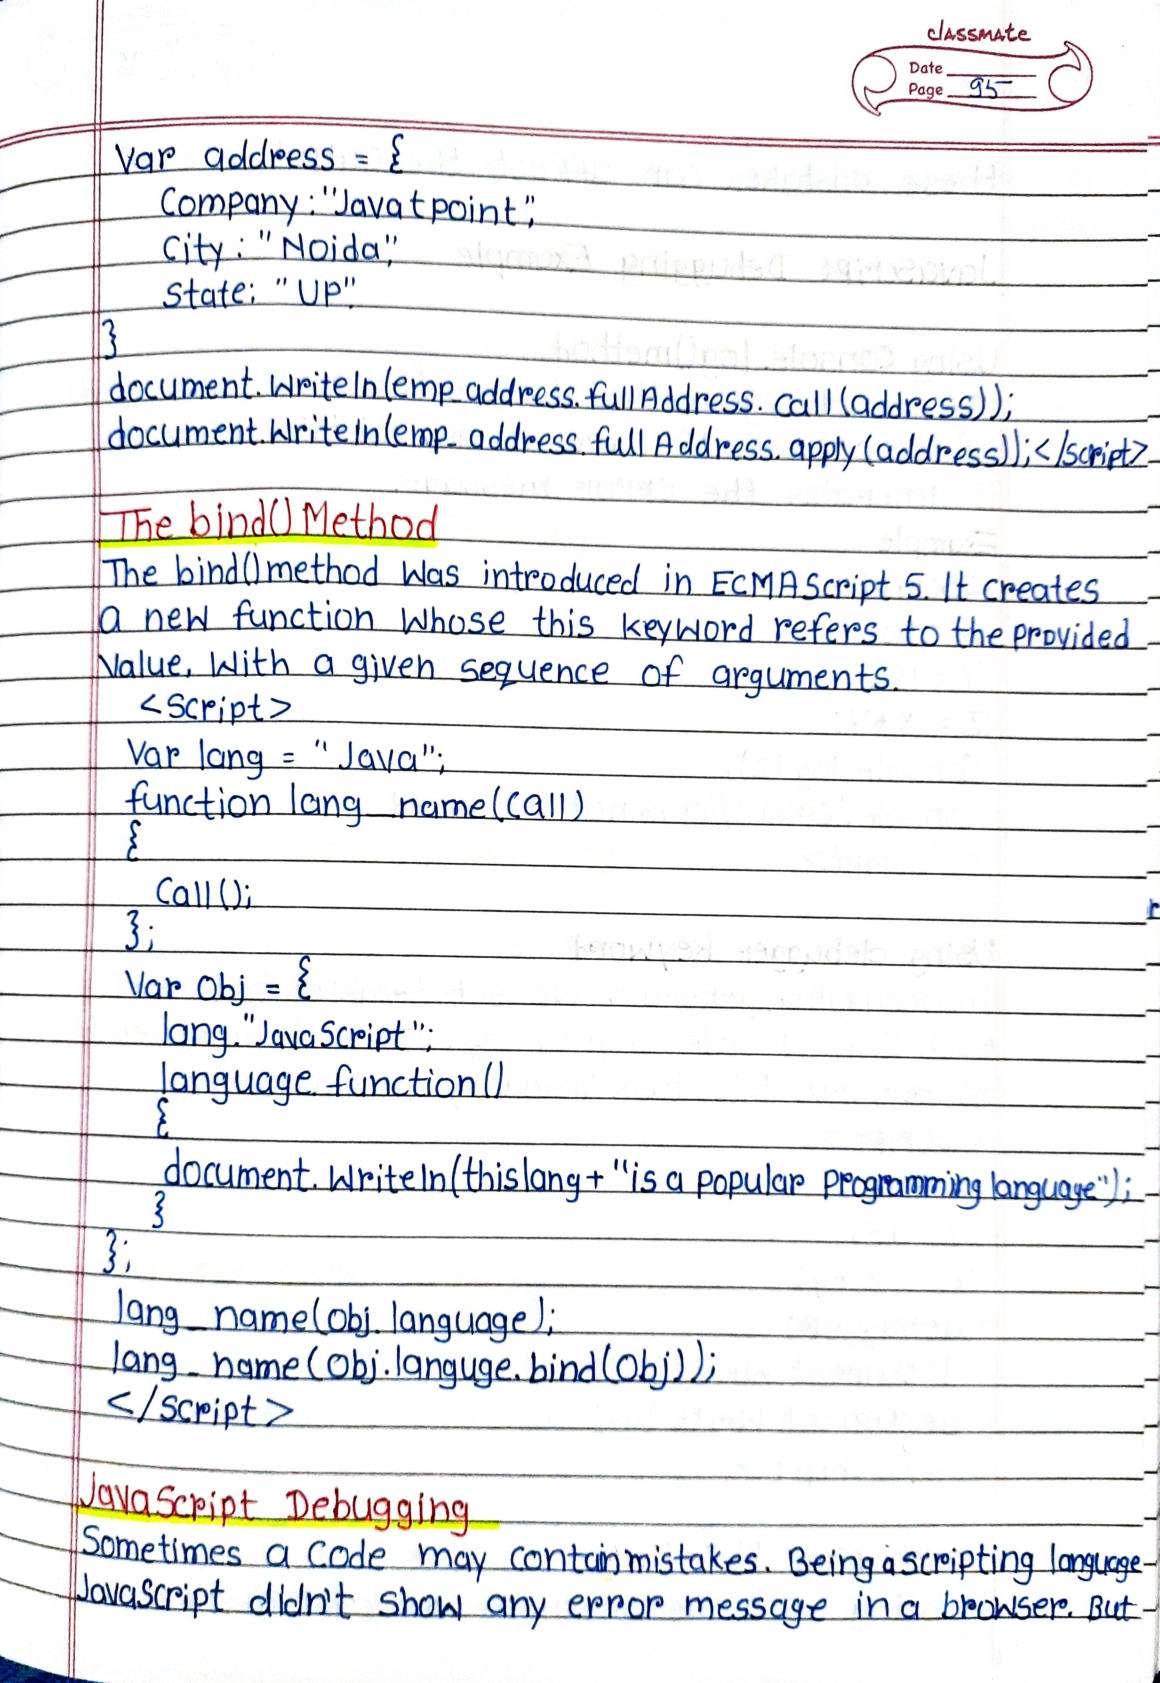 classmate
Date
Page 95
Var address = {
Company:"Javatpoint",
City: "Noida",
State: "UP"
}
document.Writeln(emp_address.fullAddress.call(address));
document.Writeln(emp_address.fullAddress.apply(address));</script>
The bind() Method
The bind() method Was introduced in ECMAScript 5. It creates
a new function Whose this keyword refers to the provided
Value, With a given sequence of arguments.
<Script>
Var lang = "Java";
function lang_name(Call)
{
Call();
};
Var Obj = {
lang."JavaScript";
language function()
{
document.Writeln(thislang+ "is a popular programming language");
}
};
lang_name(obj.language);
lang_name(Obj.languge.bind(Obj));
</Script>
JavaScript Debugging
Sometimes a Code may contain mistakes. Being a scripting language
JavaScript didn't show any error message in a browser. But